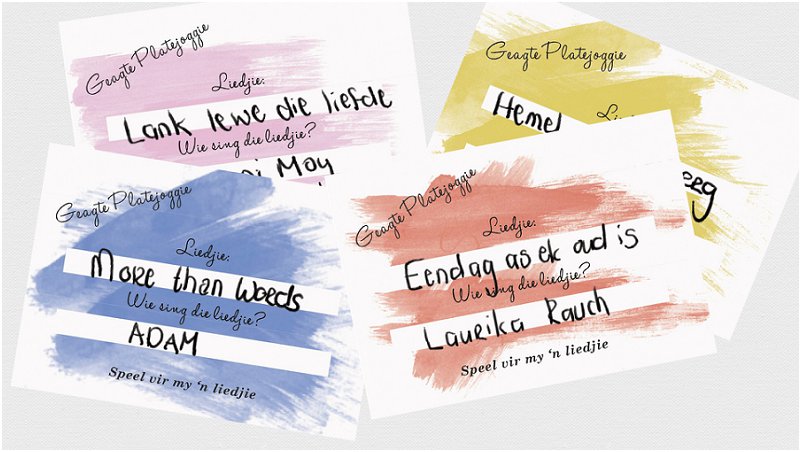 Geagte Platejoggie
Liedjie:
Lank lewe die liefde
Wie sing die liedjie?
May
Geagte Platejoggie
Hemel
Geagte Platejoggie
Liedjie:
More than Words
Wie sing die liedjie?
ADAM
Speel vir my 'n liedjie
Geagte Platejoggie
Liedjie:
Eendag as ek oud is
Wie sing die liedjie?
Laurika Rauch
Speel vir my 'n liedjie